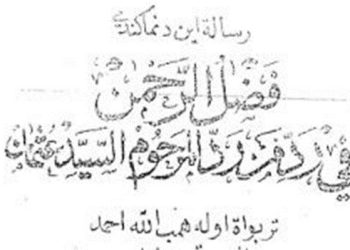 رسالة اين دنماكندي
فَضْلُ الرَّحْمٰنِ
فِي رَدِّ مَنْ رَدَّ المَرْحُوْمَ السَّيِّدْ عُثْمَانْ
تربواة اوله همب الله احمد